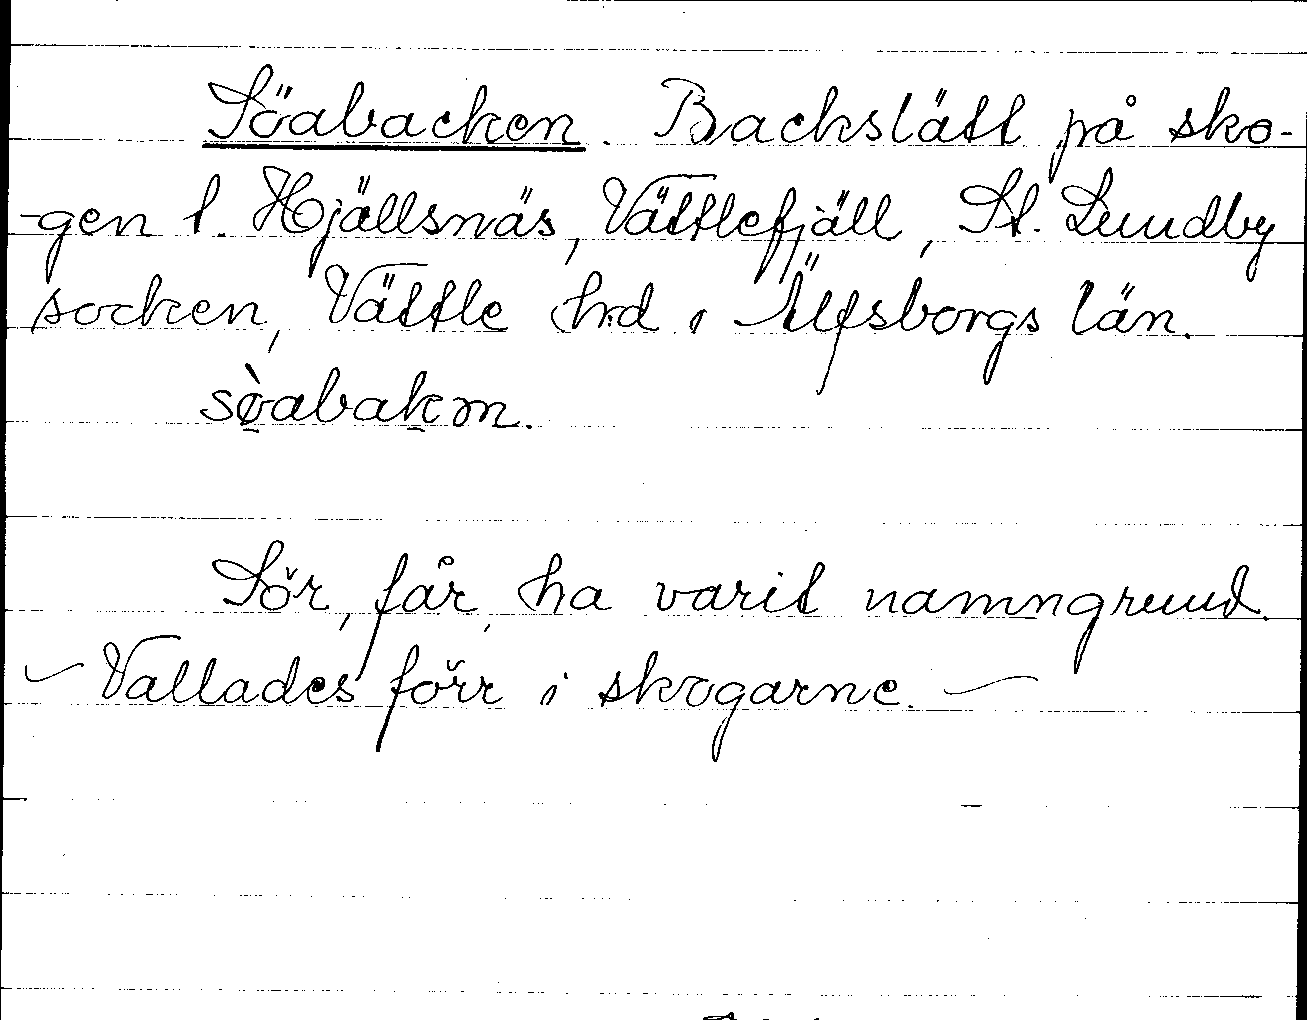 Söabacken. Backslätt på sko-
-gen t. Hjällsnäs, Vättlefjäll, St. Lundby
socken, Vättle hrd i Älfsborgs län.
sø̀abakɛn.
Sör, får, ha varit namngrund.
- Vallades förr i skogarne. -